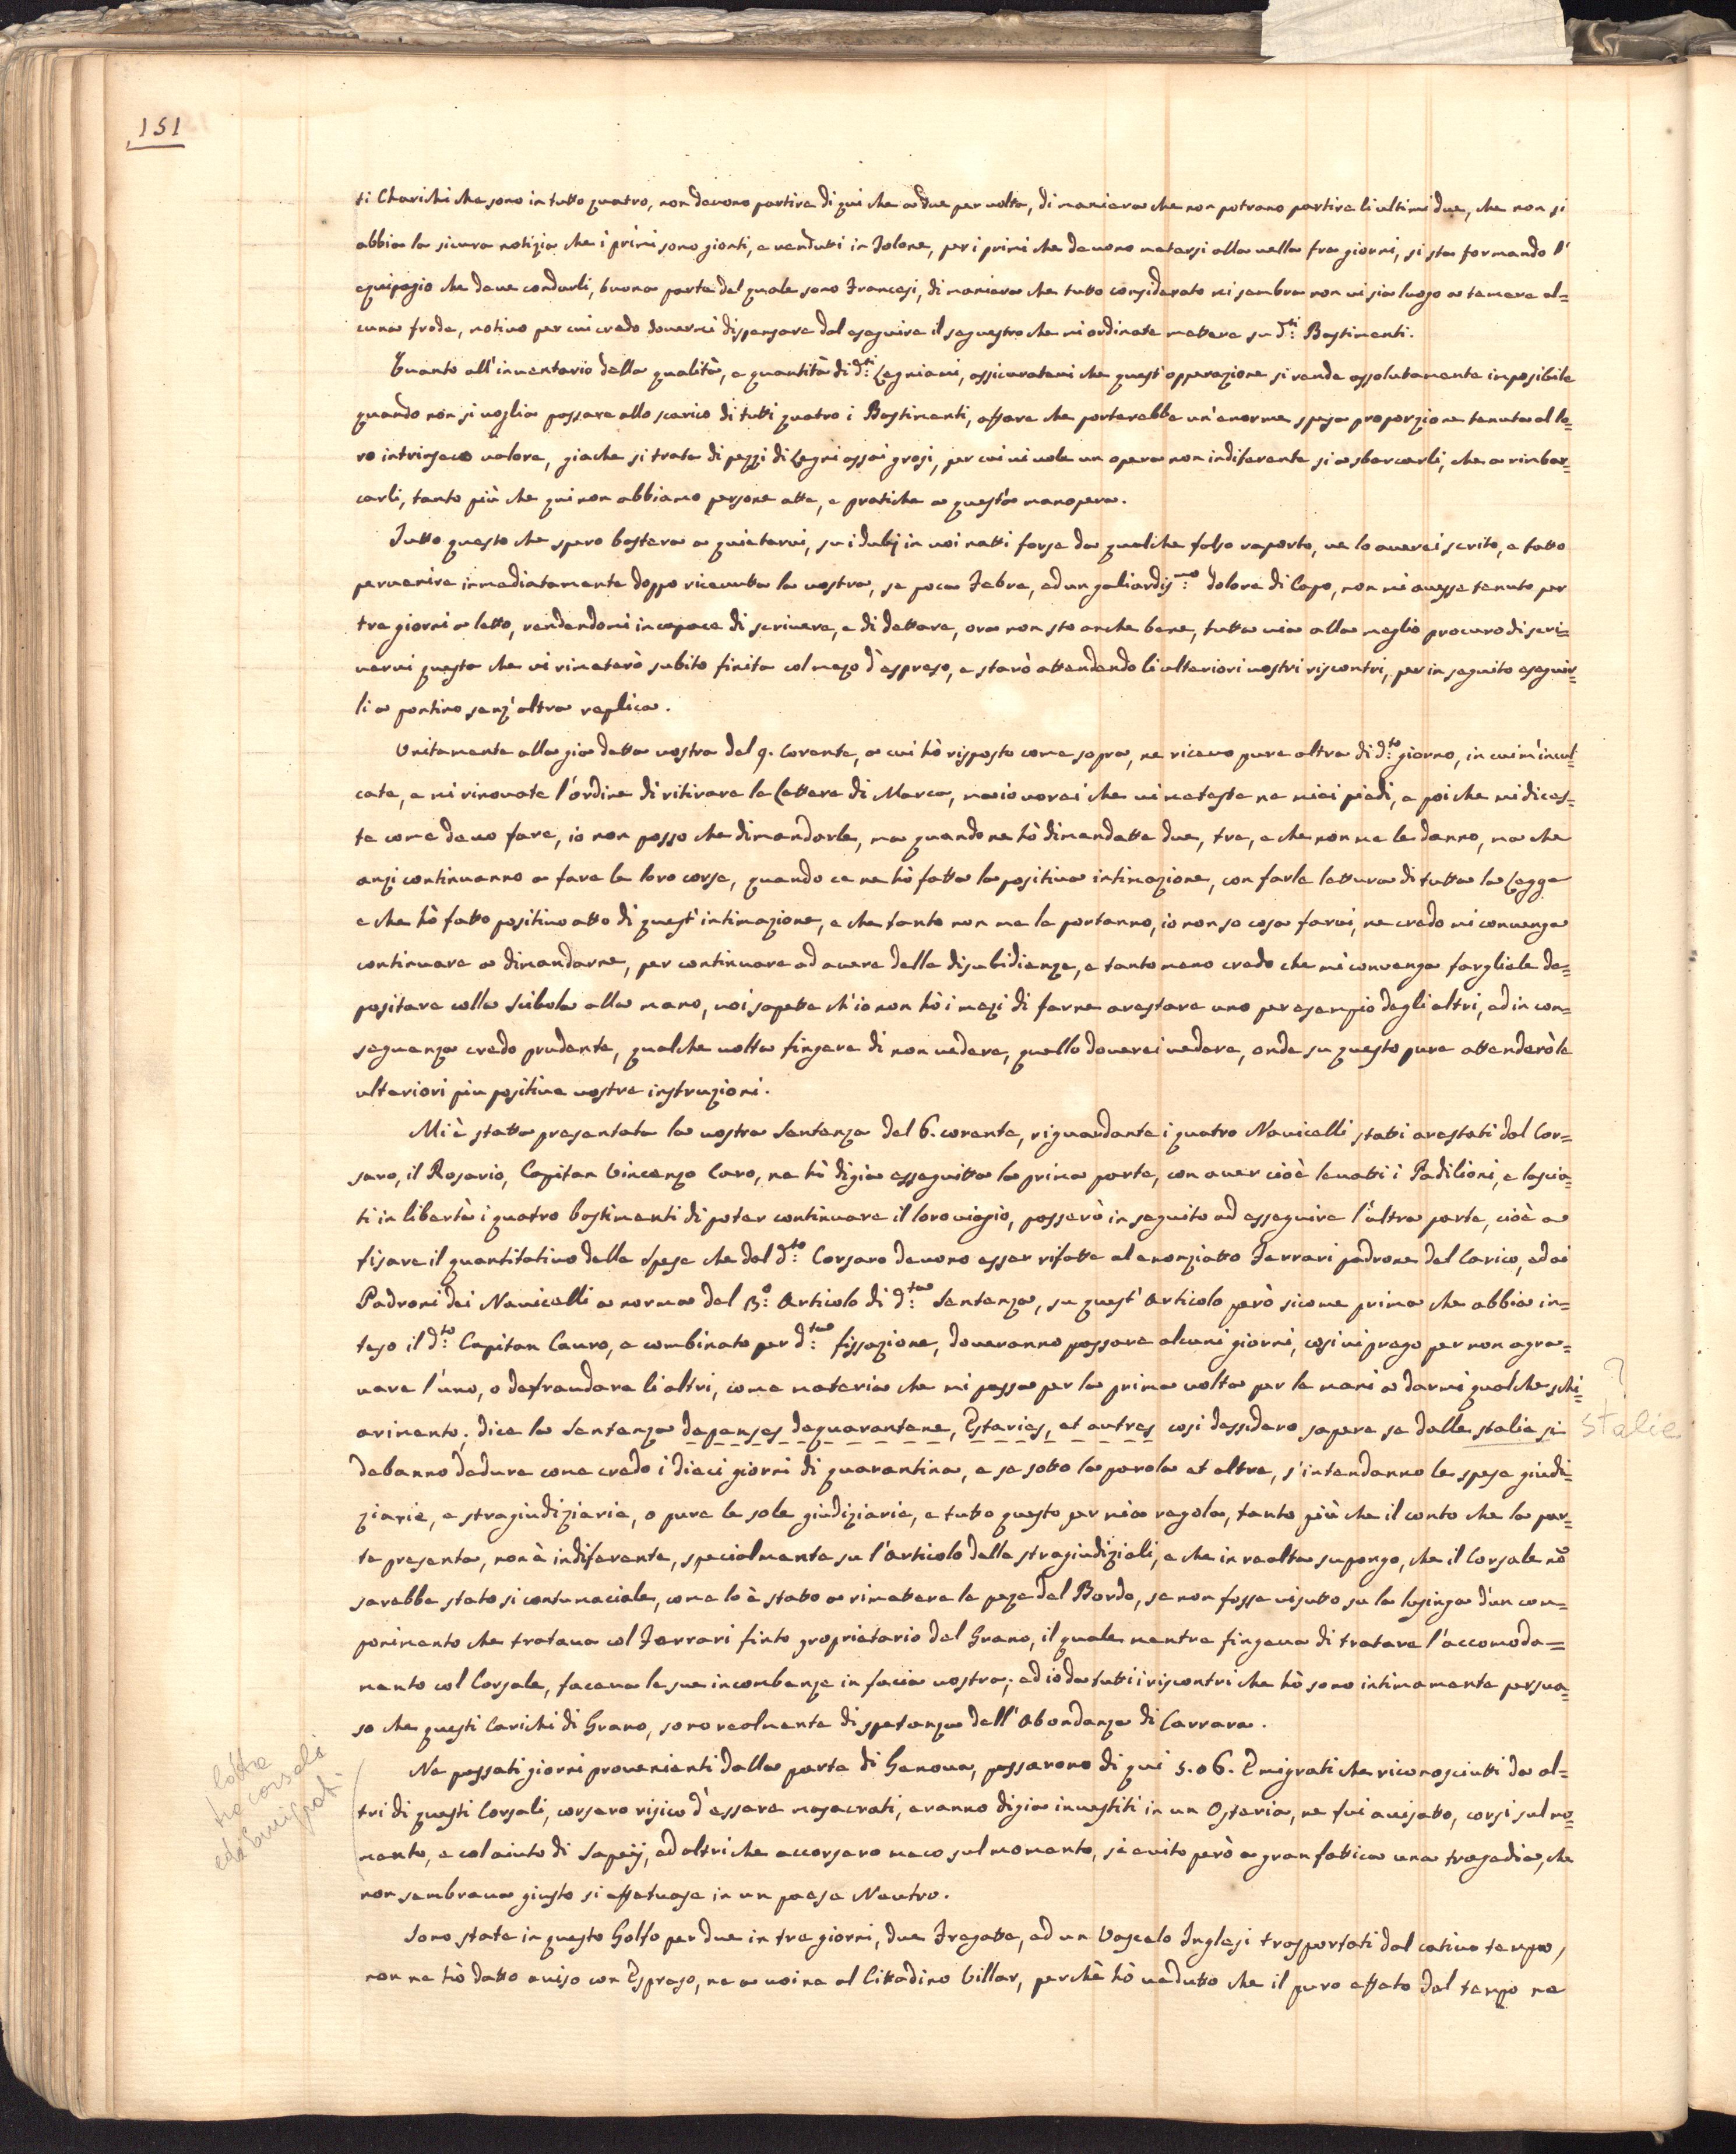 151
ti Charichi che sono in tutto quatro, non devono partire di qui che a due per volta, di maniera che non potrano partire li ultimi due, che non si
abbia la sicura notizia che i primi sono gionti, e vendutti in Tolone, per i primi che devono metersi alla vella fra giorni, si sta formando l'
equipagio che deve condurli, buona parte del quale sono Francesi, di maniera che tutto considerato mi sembra non vi sia luogo a temere al=
cuna frode, motivo per cui credo dovermi dispensare dal eseguire il seguestro che mi ordinate mettere su d:ti Bastimenti.
Quanto all'inventario della qualità, e quantità di d:ti Legniami, assicuratevi che quest'opperazione si rende assolutamente imposibile
quando non si voglia passare allo scarico di tutti quatro i Bastimenti, affare che porterebbe un'enorme spesa proporzione tenuta al lo=
ro intrinseco valore, giache si trata di pezzi di Legni assai grosi, per cui vi vole un opera non indiferente si a sbarcarli, che a rimbar=
carli, tanto più che qui non abbiamo persone atte, e pratiche a questa manopera.
Tutto questo che spero bastera a quietarvi, su i dubij in voi natti forse da qualche falso raporto, ve lo averei scrito, e fatto
pervenire immediatamente doppo ricevutta la vostra, se poca Febre, ed un galiardis:mo dolore di Capo, non mi avesse tenuto per
tre giorni a letto, rendendomi incapace di scrivere, e di dettare, ora non sto anche bene, tutta via alla meglio procuro di scri=
vervi questa che vi rimeterò subito finita col mezo d'espreso, e starò attendendo li ulteriori vostri riscontri, per in seguito eseguir=
li a pontino senz'altra replica.
Unitamente alla gia detta vostra del 9. Corente, a cui hò risposto come sopra, ne ricevo pure altra di d:to giorno, in cui m'incul=
cate, e mi rinovate l'ordine di ritirare le Lettere di Marca, ma io vorei che vi meteste ne miei piedi, e poi che mi dices=
te come devo fare, io non posso che dimandarle, ma quando ne hò dimandatte due, tre, e che non me le danno, ma che
anzi continuanno a fare le loro corse, quando ce ne hò fatta la positiva intimazione, con farle lettura di tutta la Legge
e che hò fatto positivo atto di quest'intimazione, e che tanto non me le portanno, io non so cosa farvi, ne credo mi convenga
continuare a dimandarne, per continuare ad avere delle disubidienze, e tanto meno credo che mi convenga fargliele de=
positare colla Scibola alla mano, voi sapette ch'io non hò i mezi di farne arestare uno per esempio degli altri, ed in con=
seguenza credo prudente, qualche volta fingere di non vedere, quello doverei vedere, onde su questo pure attenderò le
ulteriori piu positive vostre instruzioni.
Mi è statta presentata la vostra Sentenza del 6. corente, riguardante i quatro Navicelli statti arestati dal Cor=
saro, il Rosario, Capitan Vincenzo Caro, ne hò digia esseguitta la prima parte, con aver cioè levatti i Padilioni, e lascia=
ti in libertà i quatro bastimenti di poter continuare il loro viagio, passerò in seguito ad esseguire l'altra parte, cioè a
fisare il quantitativo delle Spese che dal d:to Corsaro devono esser rifatte al enonziatto Ferrari padrone del Carico, ed ai
Padroni dei Navicelli a norma del 3:o Articolo di d:ta Sentenza, su quest'Articolo però sicome prima che abbia in=
teso il d:to Capitan Cauro, e combinato per d:ta fissazione, doveranno passare alcuni giorni, così vi prego per non agra=
vare l'uno, o defraudare li altri, come materia che mi passa per la prima volta per le mani a darmi qualche schi=
arimento; dice la Sentenza depenses dequarantene, Estaries, et autres così dessidero sapere se dalle stalie si
debanno dedure come credo i dieci giorni di quarantina, e se sotto la parola et altre, s'intendanno le spese giudi=
ziarie, e stragiudiziarie, o pure le sole giudiziarie, e tutto questo per mia regola, tanto più che il conto che la par=
te presenta, non è indiferente, specialmente su l'articolo delle stragiudiziali, e che in realta supongo, che il Corsale nõ
sarebbe stato si contumaciale, come lo è statto a rimettere le peze del Bordo, se non fosse visutto su la lusinga d'un com=
ponimento che tratava col Ferrari finto proprietario del Grano, il quale mentre fingeva di tratare l'accomoda=
mento col Corsale, faceva le sue incombenze in facia vostra; ed io da tutti i riscontri che hò sono intimamente persua=
so che questi Carichi di Grano, sono realmente di spetanza dell'Abondanza di Carrara.
Ne passati giorni provenienti dalla parte di Genova, passarono di qui 5. o 6. Emigrati che riconosciutti da al=
tri di questi Corsali, corsero risico d'essere masacrati, eranno digia investiti in un Osteria, ne fui avisatto, corsi sul mo=
mento, e col aiuto di Sapeij, ed altri che accorsero meco sul momento, si evito però a gran fattica una tragedia, che
non sembrava giusto si effetuase in un paese Neutro.
Sono state in questo Golfo per due in tre giorni, due Fregatte, ed un Vascelo Inglesi trasportati dal cativo tempo,
non ne hò datto aviso con Espreso, ne a voi ne al Cittadino Villar, perchè hò vedutto che il puro effeto del tempo ne
?
stalie
lotte
tra corsali
ed Emigrati